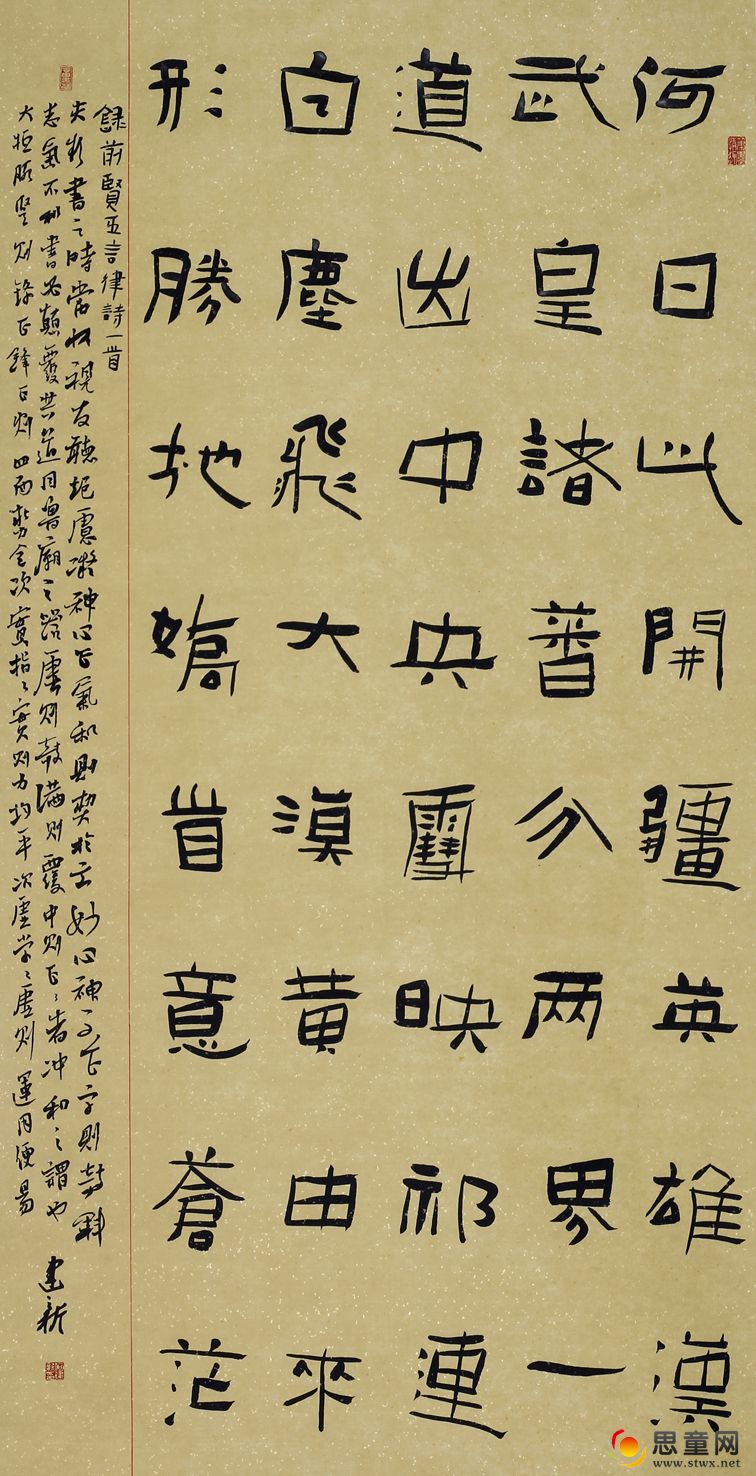 何日此開疆英雄漢
武皇諸分兩界一
道出中央雪映祁連
白塵飛大漠黃由來
形勝地矯首意蒼茫
錄前賢五言律詩一首
夫欲書之時當收視反聽絕慮凝神心正氣和則契於玄妙心神不正字則欹斜
志氣不和書必顛覆其道同魯廟之器虛則欹滿則覆中則正々者沖和之謂也
大抵腕豎則鋒正鋒正則四面勢全次實指々實則力均平次虛掌々虛則運用便易
建新
思童网
www.stwx.net